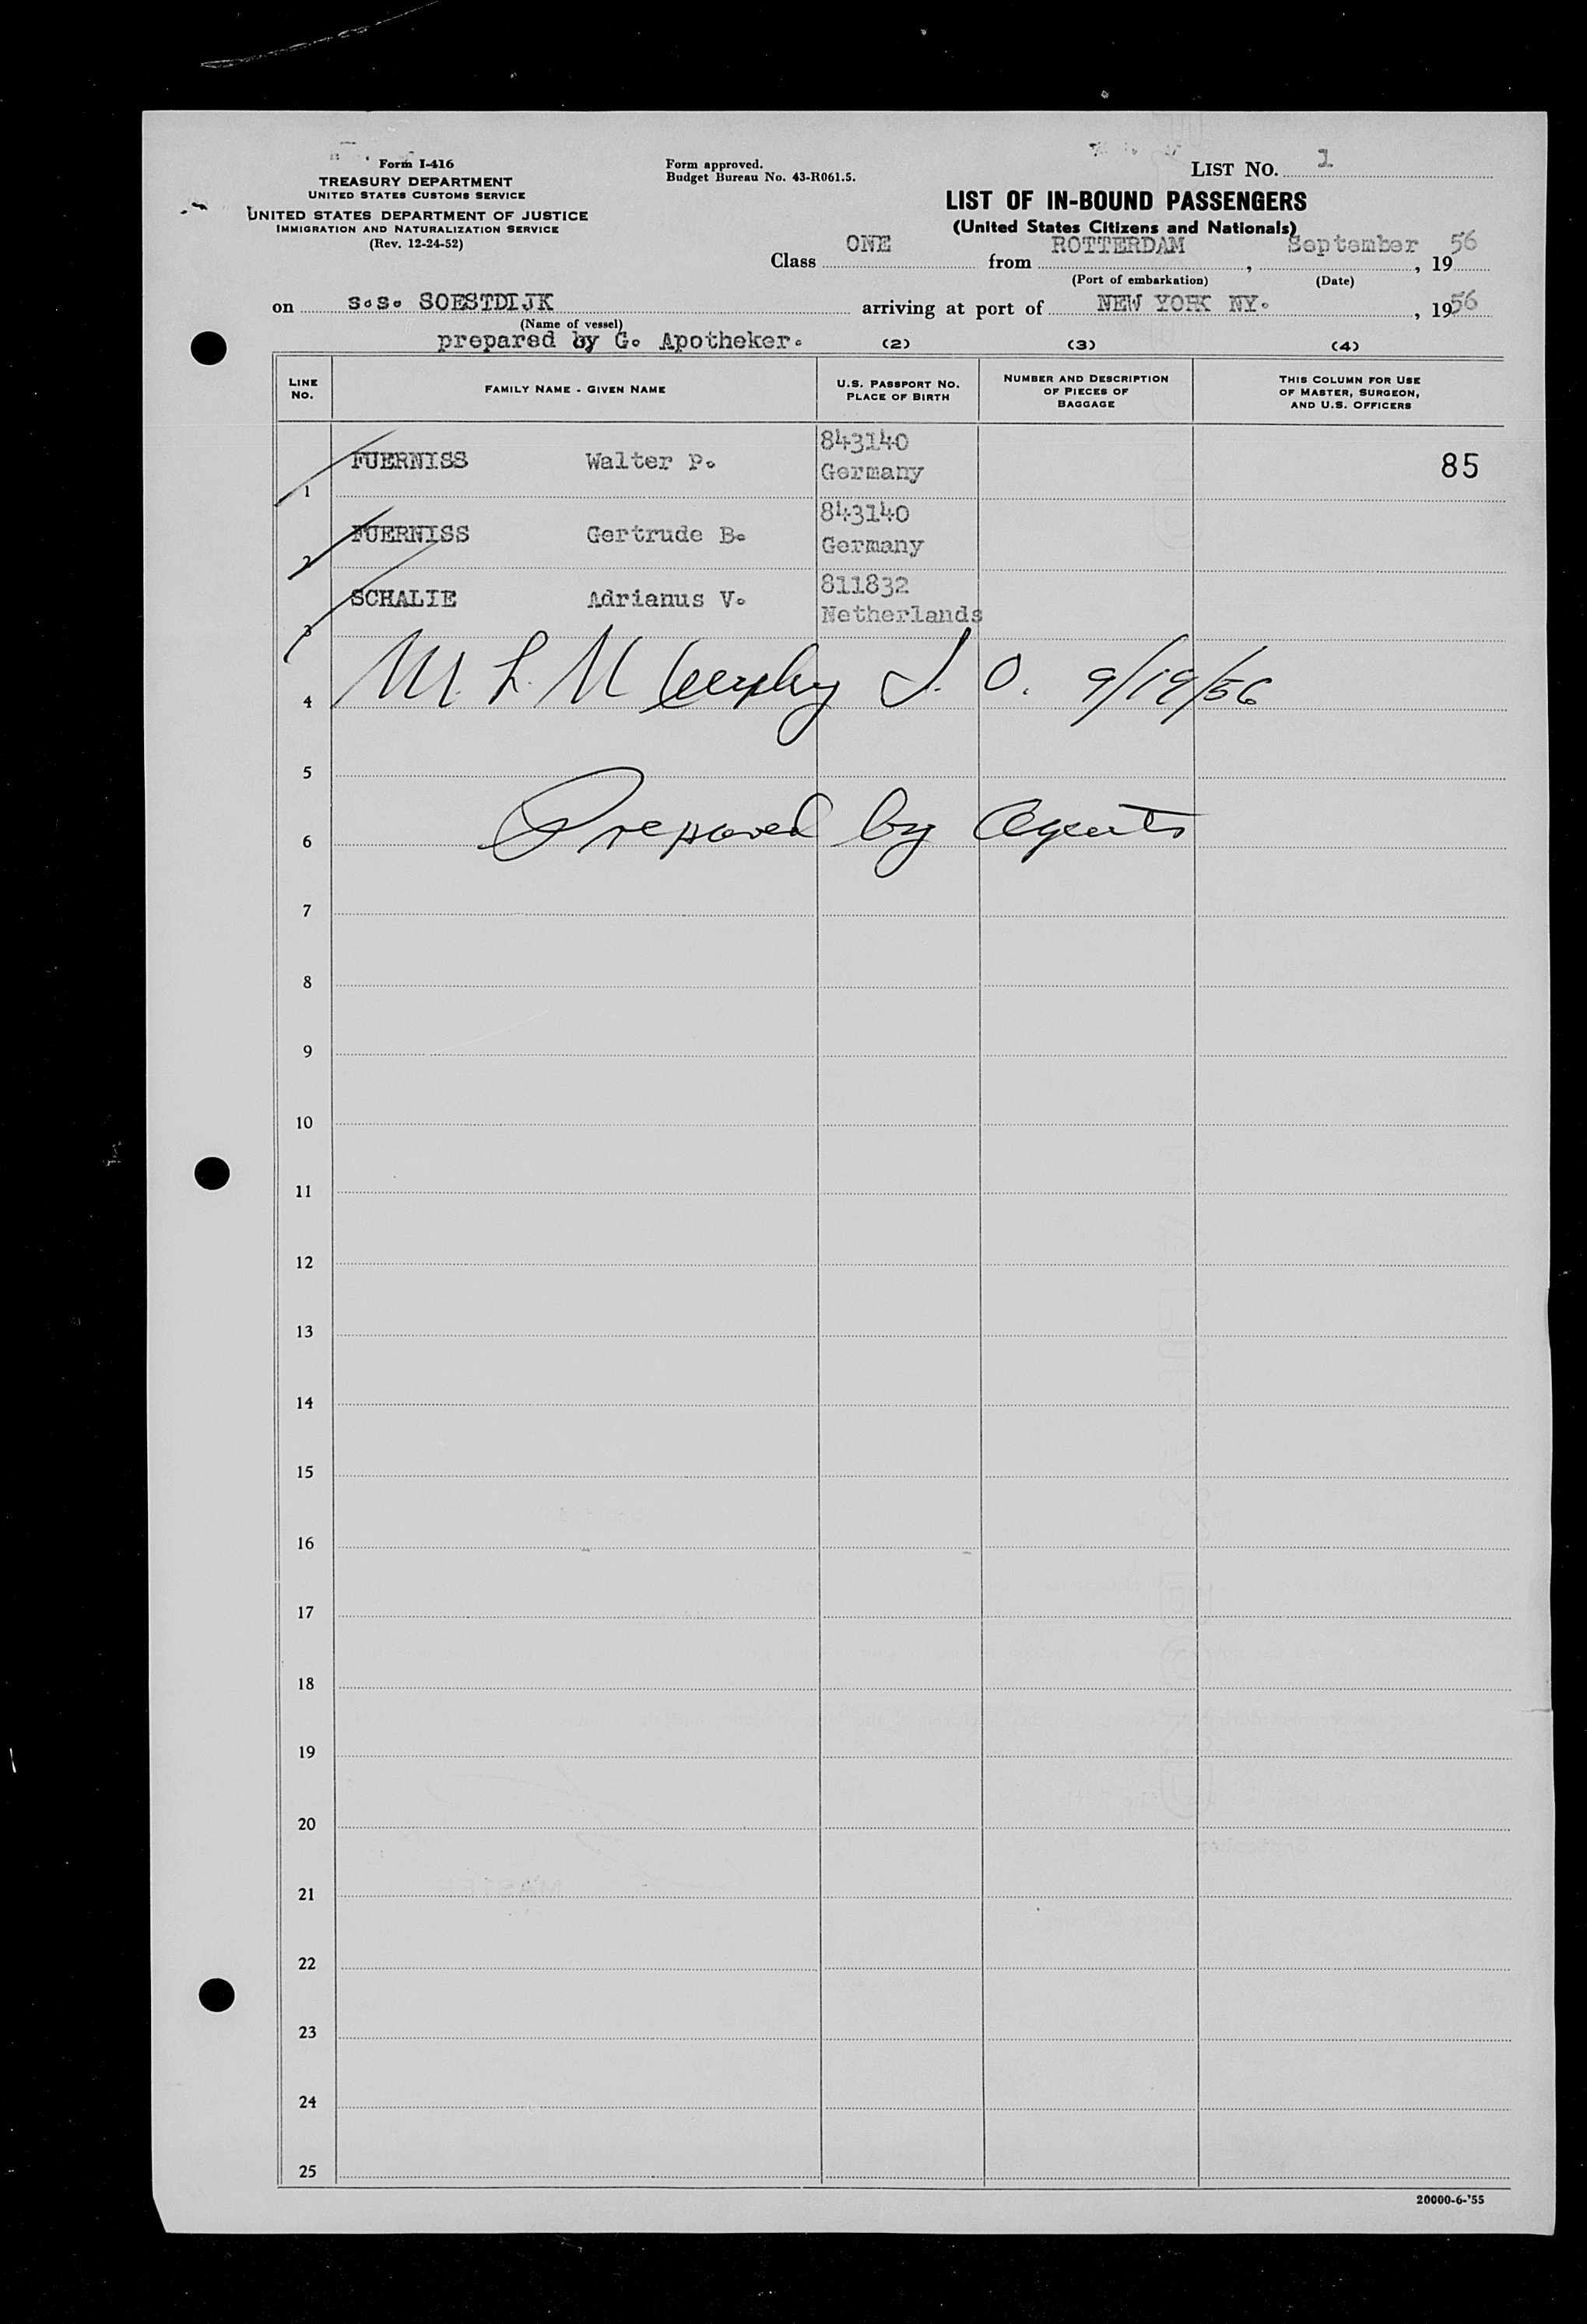 Form I-416
TREASURY DEPARTMENT
UNITED STATES CUSTOMS SERVICE
UNITED STATES DEPARTMENT OF JUSTICE
IMMIGRATION AND NATURALIZATION SERVICE
(Rev. 12-24-52)
Form approved.
Budget Bureau No. 43-R061.5.
LIST NO. 1
LIST OF IN-BOUND PASSENGERS
(United States Citizens and Nationals)
Class ONE from ROTTERDAM, September, 1956
(Port of embarkation) (Date)
on s.s. SOESTDIJK arriving at port of NEW YORK NY., 1956
(Name of vessel)
prepared by G. Apotheker.
(2) (3) (4)
LINE NO. FAMILY NAME - GIVEN NAME U.S. PASSPORT NO. PLACE OF BIRTH NUMBER AND DESCRIPTION OF PIECES OF BAGGAGE THIS COLUMN FOR USE OF MASTER, SURGEON, AND U.S. OFFICERS
1 FUERNISS Walter P. 843140 Germany 85
2 FUERNISS Gertrude B. 843140 Germany
3 SCHALIE Adrianus V. 811832 Netherlands
4 M. L. Murphy I. O. 9/19/56
5
6 Prepared by Agents
7
8
9
10
11
12
13
14
15
16
17
18
19
20
21
22
23
24
25
20000-6-'55